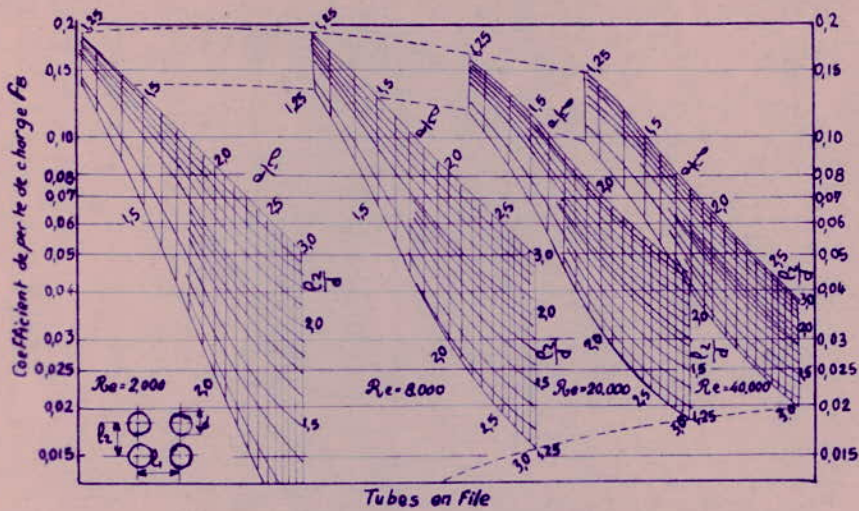 Coefficient de perte de charge FB
0,2
0,15
0,10
0,08
0,07
0,06
0,05
0,04
0,03
0,025
0,02
0,015
1,25
1,5
2,0
2,5
3,0
l2/d
2,0
1,5
1,5
2,0
Re=2,000
l2
l1
1,25
1,5
2,0
2,5
3,0
2,0
l2/d
1,5
1,25
1,25
1,5
2,0
2,5
3,0
Re=8.000
1,25
1,5
2,0
2,0
l2/d
1,5
1,25
2,0
2,5
3,0
Re=20.000
1,25
1,5
2,0
2,5
l2/d
3,0
2,0
1,5
3,0
Re=40,000
0,2
0,15
0,10
0,08
0,07
0,06
0,05
0,04
0,03
0,025
0,02
0,015
Tubes en File